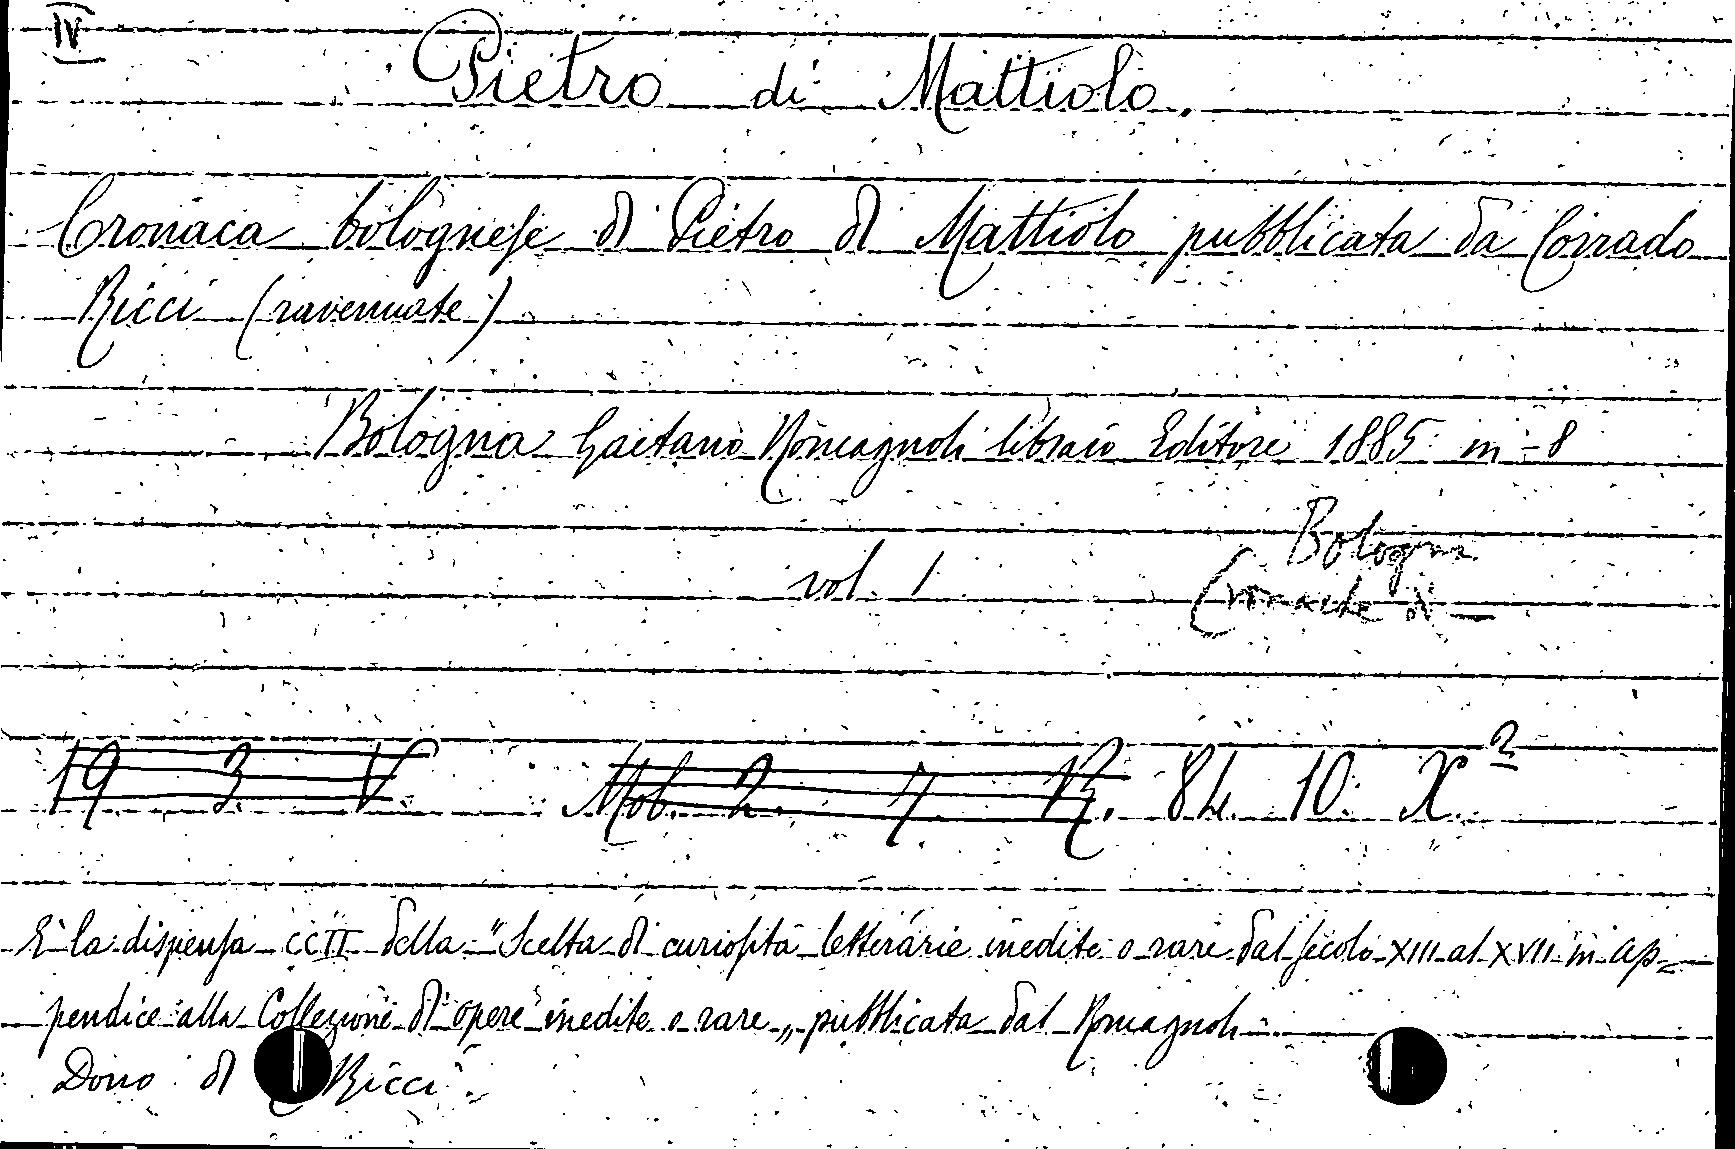 IV
Pietro di Mattiolo.
Cronaca bolognese di Pietro di Mattiolo pubblicata da Corrado
Ricci (ravennate)
Bologna Gaetano Romagnoli libraio Editore 1885 in-8
Bologna
vol. 1
Cronache di —
19 3 V Mob. 2. 7. R. 84. 10. X.2
È la dispensa CCII della "Scelta di curiosità letterarie inedite o rare dal secolo XIII al XVII in ap=
pendice alla Collezione di opere inedite o rare„ pubblicata dal Romagnoli
Dono di Ricci